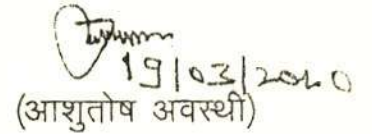 19/03/2020
(आशुतोष अवस्थी)